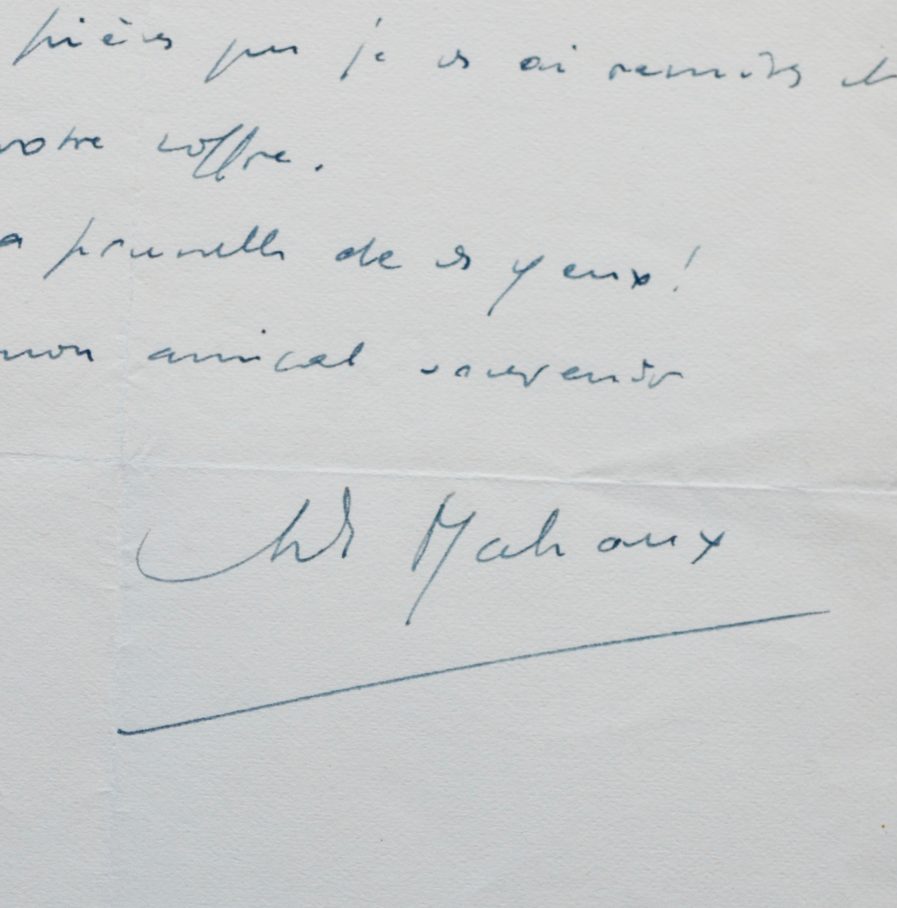 pièces que je vs ai remises
votre coffre.
a prunelle de vs yeux!
mon amical souvenir
André Malraux